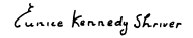 Eunice Kennedy Shriver